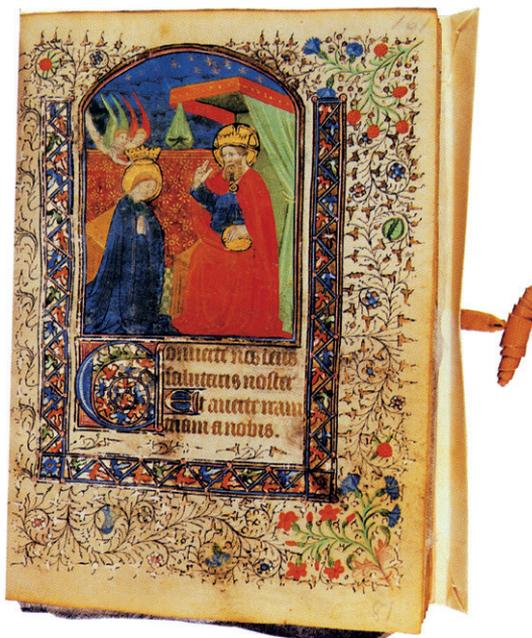 161
Conuerte nos deus
salutaris noster
Et auerte iram
tuam a nobis.
81